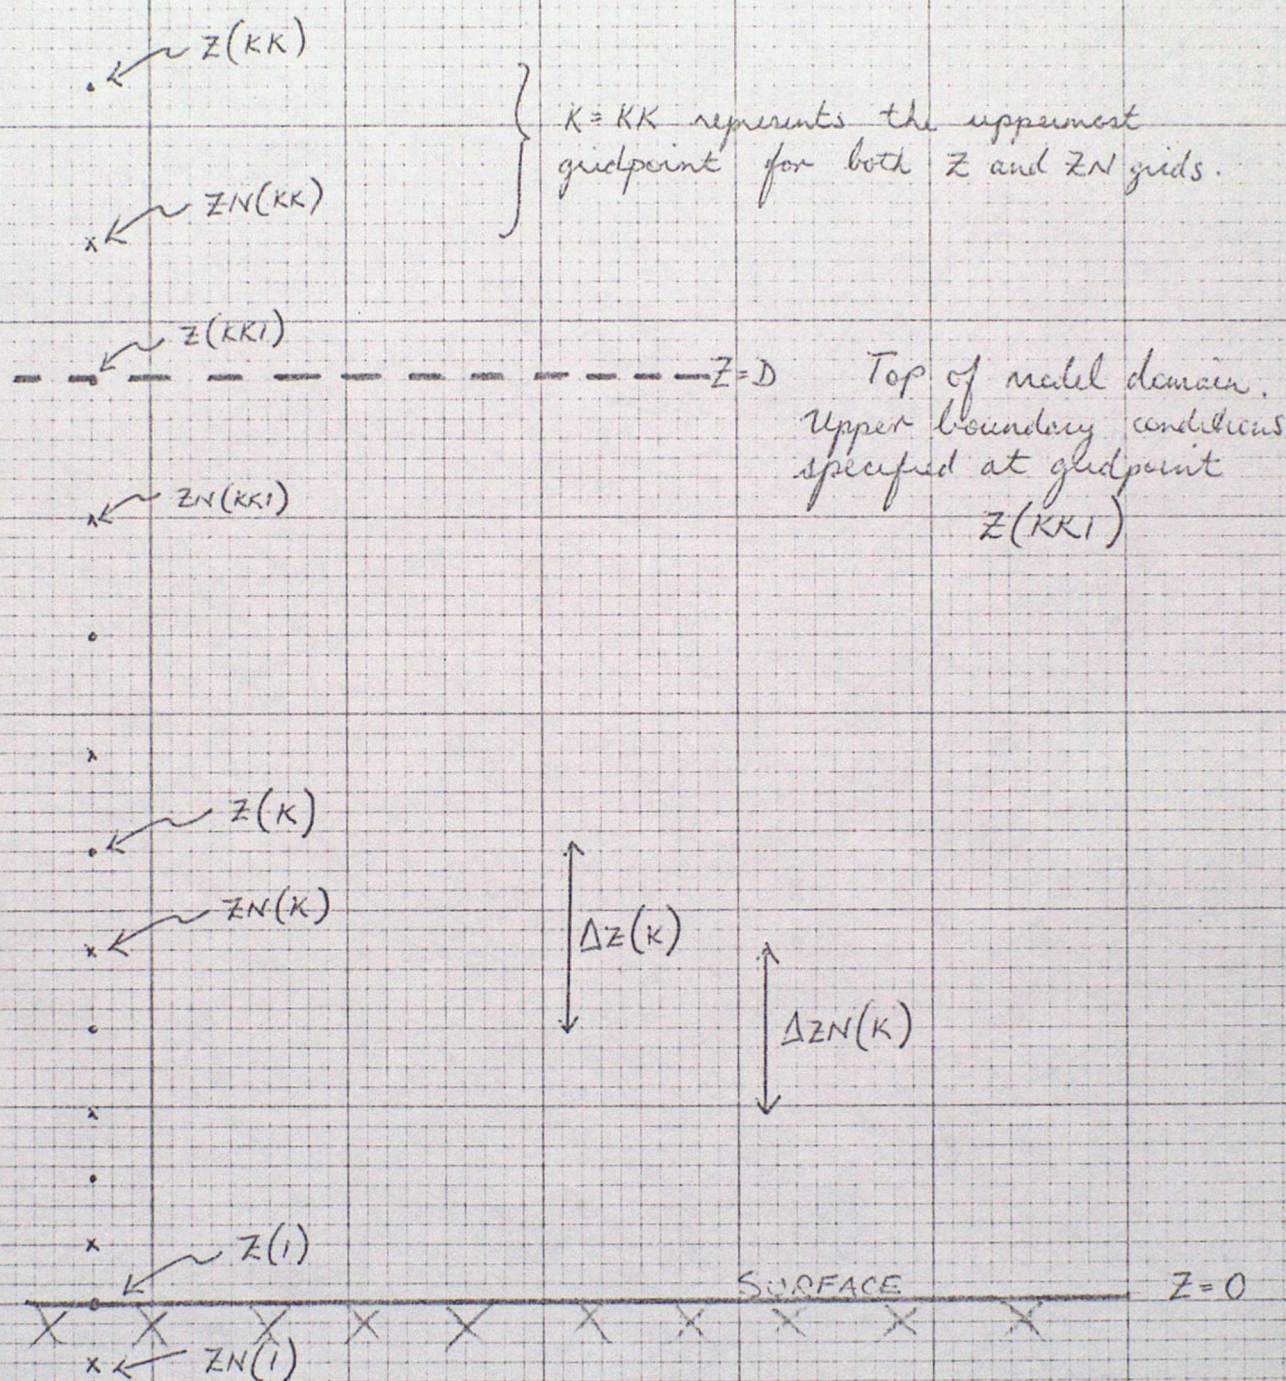 Z(KK)
K = KK represents the uppermost
gridpoint for both Z and ZN grids.
ZN(KK)
Z(KK1)
Z=D Top of model domain.
Upper boundary conditions
specified at gridpoint
Z(KK1)
ZN(KK1)
Z(K)
ZN(K)
ΔZ(K)
ΔZN(K)
Z(1)
SURFACE
Z=0
ZN(1)